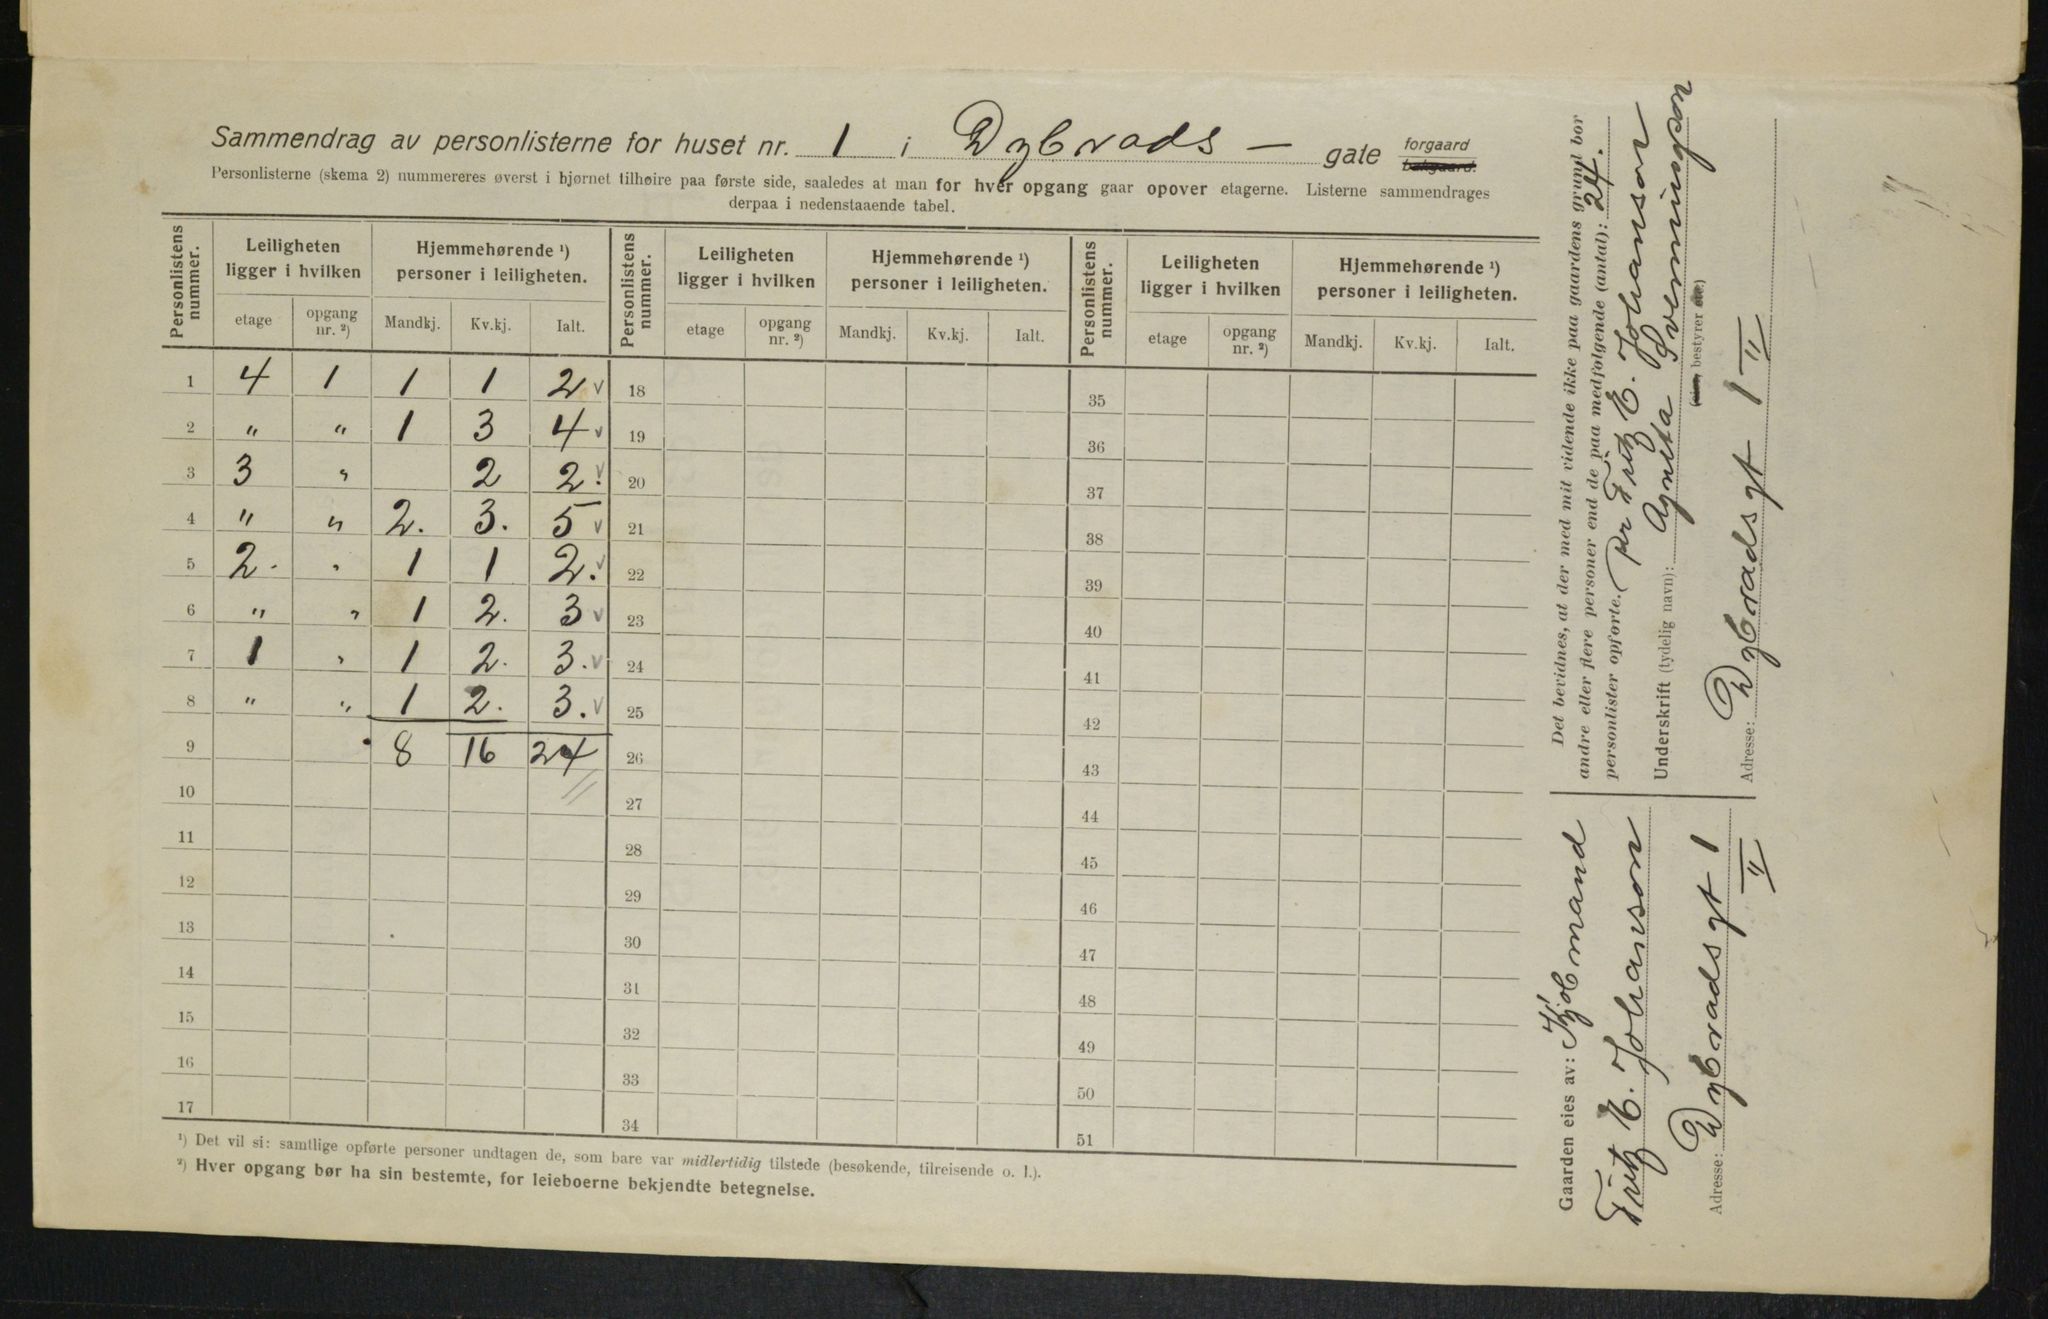 Sammendrag av personlisterne for huset nr. 1 i Dybvads — gate forgaard bakgaard.
Personlisterne (skema 2) nummereres øverst i hjørnet tilhøire paa første side, saaledes at man for hver opgang gaar opover etagerne. Listerne sammendrages
derpaa i nedenstaaende tabel.
Personlistens nummer. Leiligheten ligger i hvilken Hjemmehørende ¹) personer i leiligheten. Personlistens nummer. Leiligheten ligger i hvilken Hjemmehørende ¹) personer i leiligheten. Personlistens nummer. Leiligheten ligger i hvilken Hjemmehørende ¹) personer i leiligheten.
etage opgang nr. ²) Mandkj. Kv.kj. Ialt. etage opgang nr. ²) Mandkj. Kv.kj. Ialt. etage opgang nr. ²) Mandkj. Kv.kj. Ialt.
1 4 1 1 1 2 v 18 35
2 " " 1 3 4 v 19 36
3 3 " 2 2. v 20 37
4 " " 2. 3. 5 v 21 38
5 2. " 1 1 2. v 22 39
6 " " 1 2. 3 v 23 40
7 1 " 1 2. 3. v 24 41
8 " " 1 2. 3. v 25 42
9 8 16 24 26 43
10 27 44
11 28 45
12 29 46
13 30 47
14 31 48
15 32 49
16 33 50
17 34 51
¹) Det vil si: samtlige opførte personer undtagen de, som bare var midlertidig tilstede (besøkende, tilreisende o. l.).
²) Hver opgang bør ha sin bestemte, for leieboerne bekjendte betegnelse.
Det bevidnes, at der med mit vidende ikke paa gaardens grund bor
andre eller flere personer end de paa medfølgende (antal): 24.
personlister opførte. Per Fritz E. Johanson
Underskrift (tydelig navn): Agneta Svenningson
bestyrer etc.)
Adresse: Dybvadsgt 1 II
Gaarden eies av: Kjøbmand
Fritz E. Johanson
Adresse: Dybvadsgt 1 II